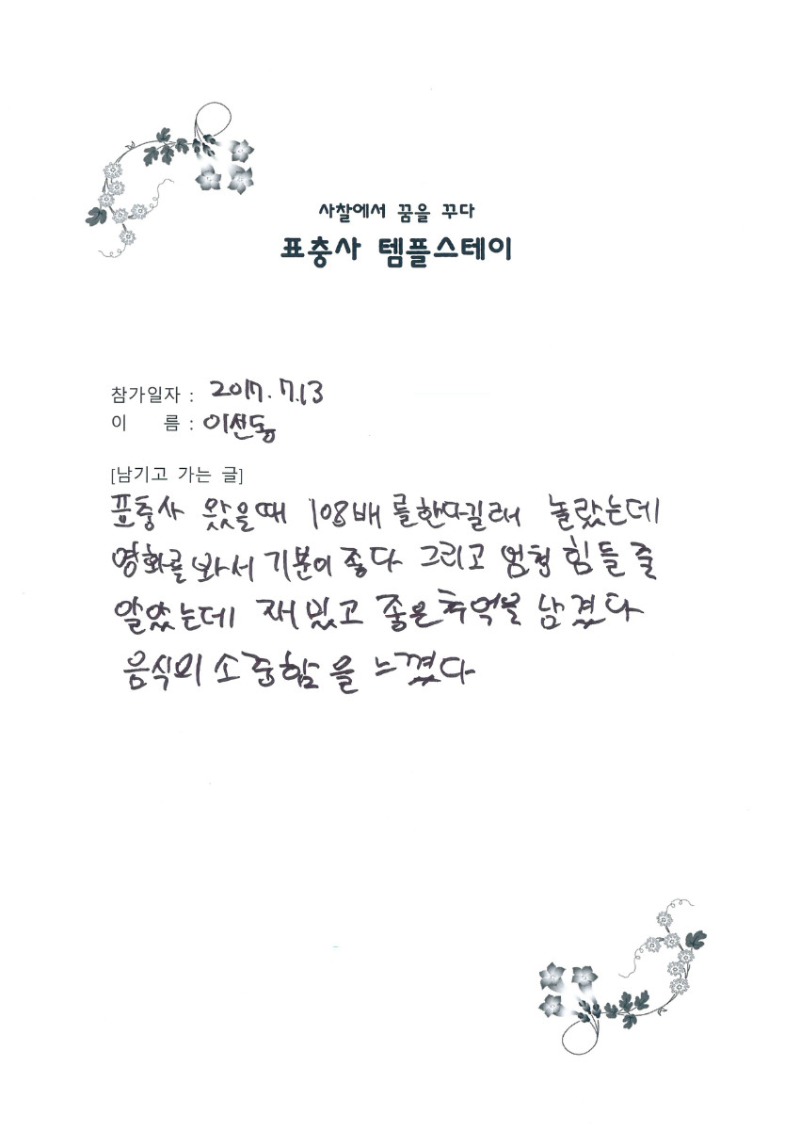 사찰에서 꿈을 꾸다
표충사 템플스테이
참가일자 : 2017. 7.13
이 름 : 이선동
[남기고 가는 글]
표충사 왔을때 108배 를한다길래 놀랐는데
영화를 봐서 기분이 좋다 그리고 엄청 힘들 줄
알았는데 재밌고 좋은추억을 남겼다
음식의 소중함을 느꼈다